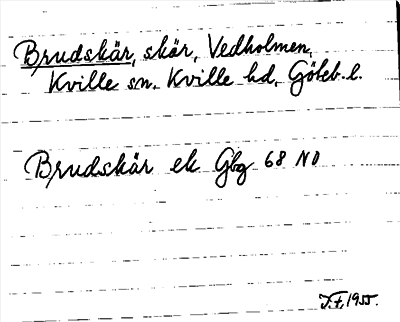 Brudskär, skär, Vedholmen,
Kville sn. Kville hd, Göteb. l.
Brudskär ek Gbg 68 NO
1955.